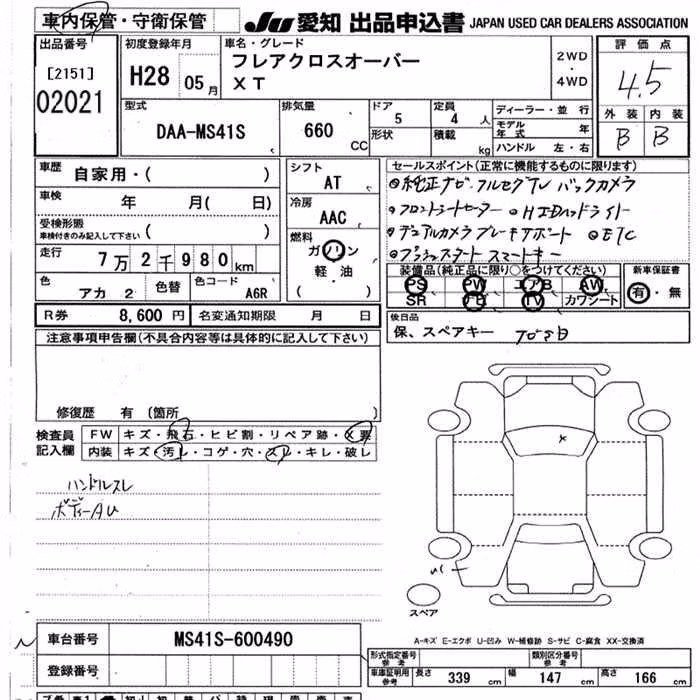 車内保管・守衛保管
JU 愛知 出品申込書 JAPAN USED CAR DEALERS ASSOCIATION
出品番号
[2151]
02021
初度登録年月
H28 05月
車名・グレード
フレアクロスオーバー
XT
2WD
・
4WD
評価点
4.5
外装 内装
B B
型式
DAA-MS41S
排気量
660 CC
ドア
5
形状
定員
4人
積載
kg
ディーラー・並行
モデル年式 年
ハンドル 左・右
車歴
自家用・( )
車検
年 月( 日)
受検形態
車検付きのみ記入して下さい ( )
走行
7万2千980km
色
アカ 2
色替
色コード
A6R
シフト
AT
冷房
AAC
燃料
ガソリン
軽・油
( )
セールスポイント(正常に機能するものに限ります)
●純正ナビ フルセグTV バックカメラ
●フロントシートヒーター ●HIDヘッドライト
●デュアルカメラブレーキサポート ●ETC
●プッシュスタート スマートキー
装備品(純正品に限り○をつけてください)
PS PW エアB AW
SR ナビ TV カワシート
新車保証書
有・無
R券 8,600円 名変通知期限 月 日
後日品
保、スペアキー
注意事項申告欄(不具合内容等は具体的に記入して下さい)
修復歴 有 (箇所 )
検査員
記入欄
FW キズ・飛石・ヒビ割・リペア跡・X要
内装 キズ・汚レ・コゲ・穴・スレ・キレ・破レ
ハンドルスレ
ボディーAU
x
スペア
A-キズ E-エクボ U-凹み W-補修跡 S-サビ C-腐食 XX-交換済
車台番号 MS41S-600490
登録番号
形式指定番号
参考
類別区分番号
参考
車庫証明用
参考
長さ 339 cm 幅 147 cm 高さ 166 cm